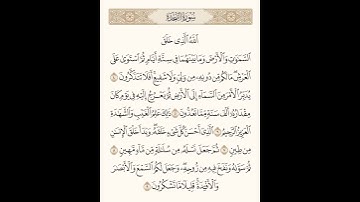 سُورَةُ السَّجْدَةِ
ٱللَّهُ ٱلَّذِى خَلَقَ
ٱلسَّمَٰوَٰتِ وَٱلْأَرْضَ وَمَا بَيْنَهُمَا فِى سِتَّةِ أَيَّامٍ ثُمَّ ٱسْتَوَىٰ عَلَى
ٱلْعَرْشِ مَا لَكُم مِّن دُونِهِۦ مِن وَلِىٍّ وَلَا شَفِيعٍ أَفَلَا تَتَذَكَّرُونَ ٤
يُدَبِّرُ ٱلْأَمْرَ مِنَ ٱلسَّمَآءِ إِلَى ٱلْأَرْضِ ثُمَّ يَعْرُجُ إِلَيْهِ فِى يَوْمٍ كَانَ
مِقْدَارُهُۥٓ أَلْفَ سَنَةٍ مِّمَّا تَعُدُّونَ ٥ ذَٰلِكَ عَٰلِمُ ٱلْغَيْبِ وَٱلشَّهَٰدَةِ
ٱلْعَزِيزُ ٱلرَّحِيمُ ٦ ٱلَّذِىٓ أَحْسَنَ كُلَّ شَىْءٍ خَلَقَهُۥ وَبَدَأَ خَلْقَ ٱلْإِنسَٰنِ
مِن طِينٍ ٧ ثُمَّ جَعَلَ نَسْلَهُۥ مِن سُلَٰلَةٍ مِّن مَّآءٍ مَّهِينٍ ٨
ثُمَّ سَوَّىٰهُ وَنَفَخَ فِيهِ مِن رُّوحِهِۦ وَجَعَلَ لَكُمُ ٱلسَّمْعَ وَٱلْأَبْصَٰرَ
وَٱلْأَفْـِٔدَةَ قَلِيلًا مَّا تَشْكُرُونَ ٩